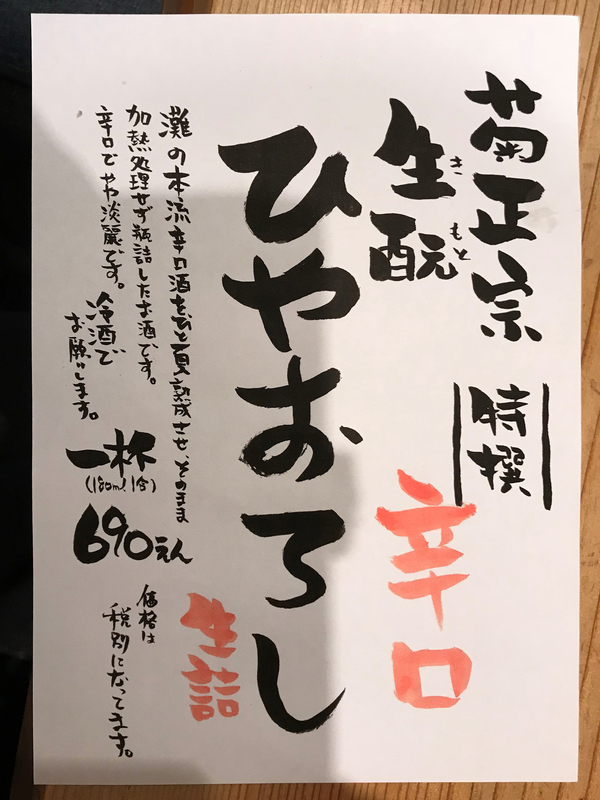 菊正宗
特撰
生酛
きもと
辛口
ひやおろし
生詰
灘の本流辛口酒をひと夏熟成させ、そのまま
加熱処理せず瓶詰したお酒です。
辛口でやや淡麗です。
冷酒で
お願いします。
一杯
(180ml 1合)
690えん
価格は
税別になってます。